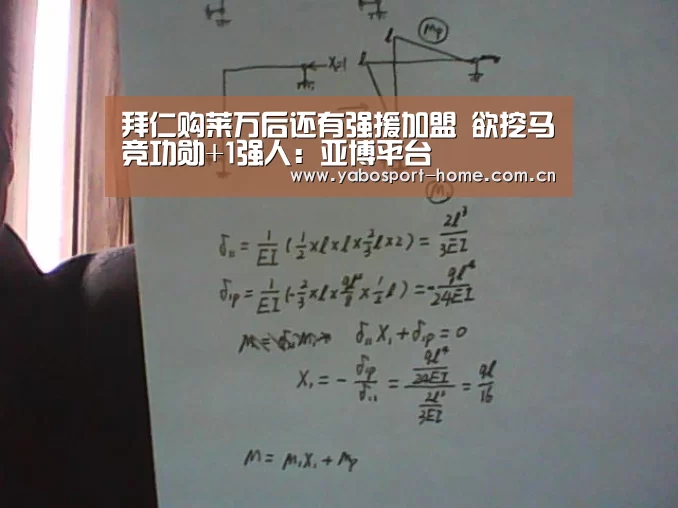 X₁=1
l
l
Mp
拜仁购莱万后还有强援加盟 欲挖马
竞功勋+1强人：亚博平台
www.yabosport-home.com.cn
M₁
δ₁₁ = 1/EI (1/2 × l × l × 2/3 l × 2) = 2l³/3EI
δ₁p = 1/EI (-2/3 × l × ql²/8 × 1/2 l) = -ql⁴/24EI
δ₁₁X₁ + δ₁p = 0
X₁ = - δ₁p/δ₁₁ = (ql⁴/24EI)/(2l³/3EI) = ql/16
M = M₁X₁ + Mp